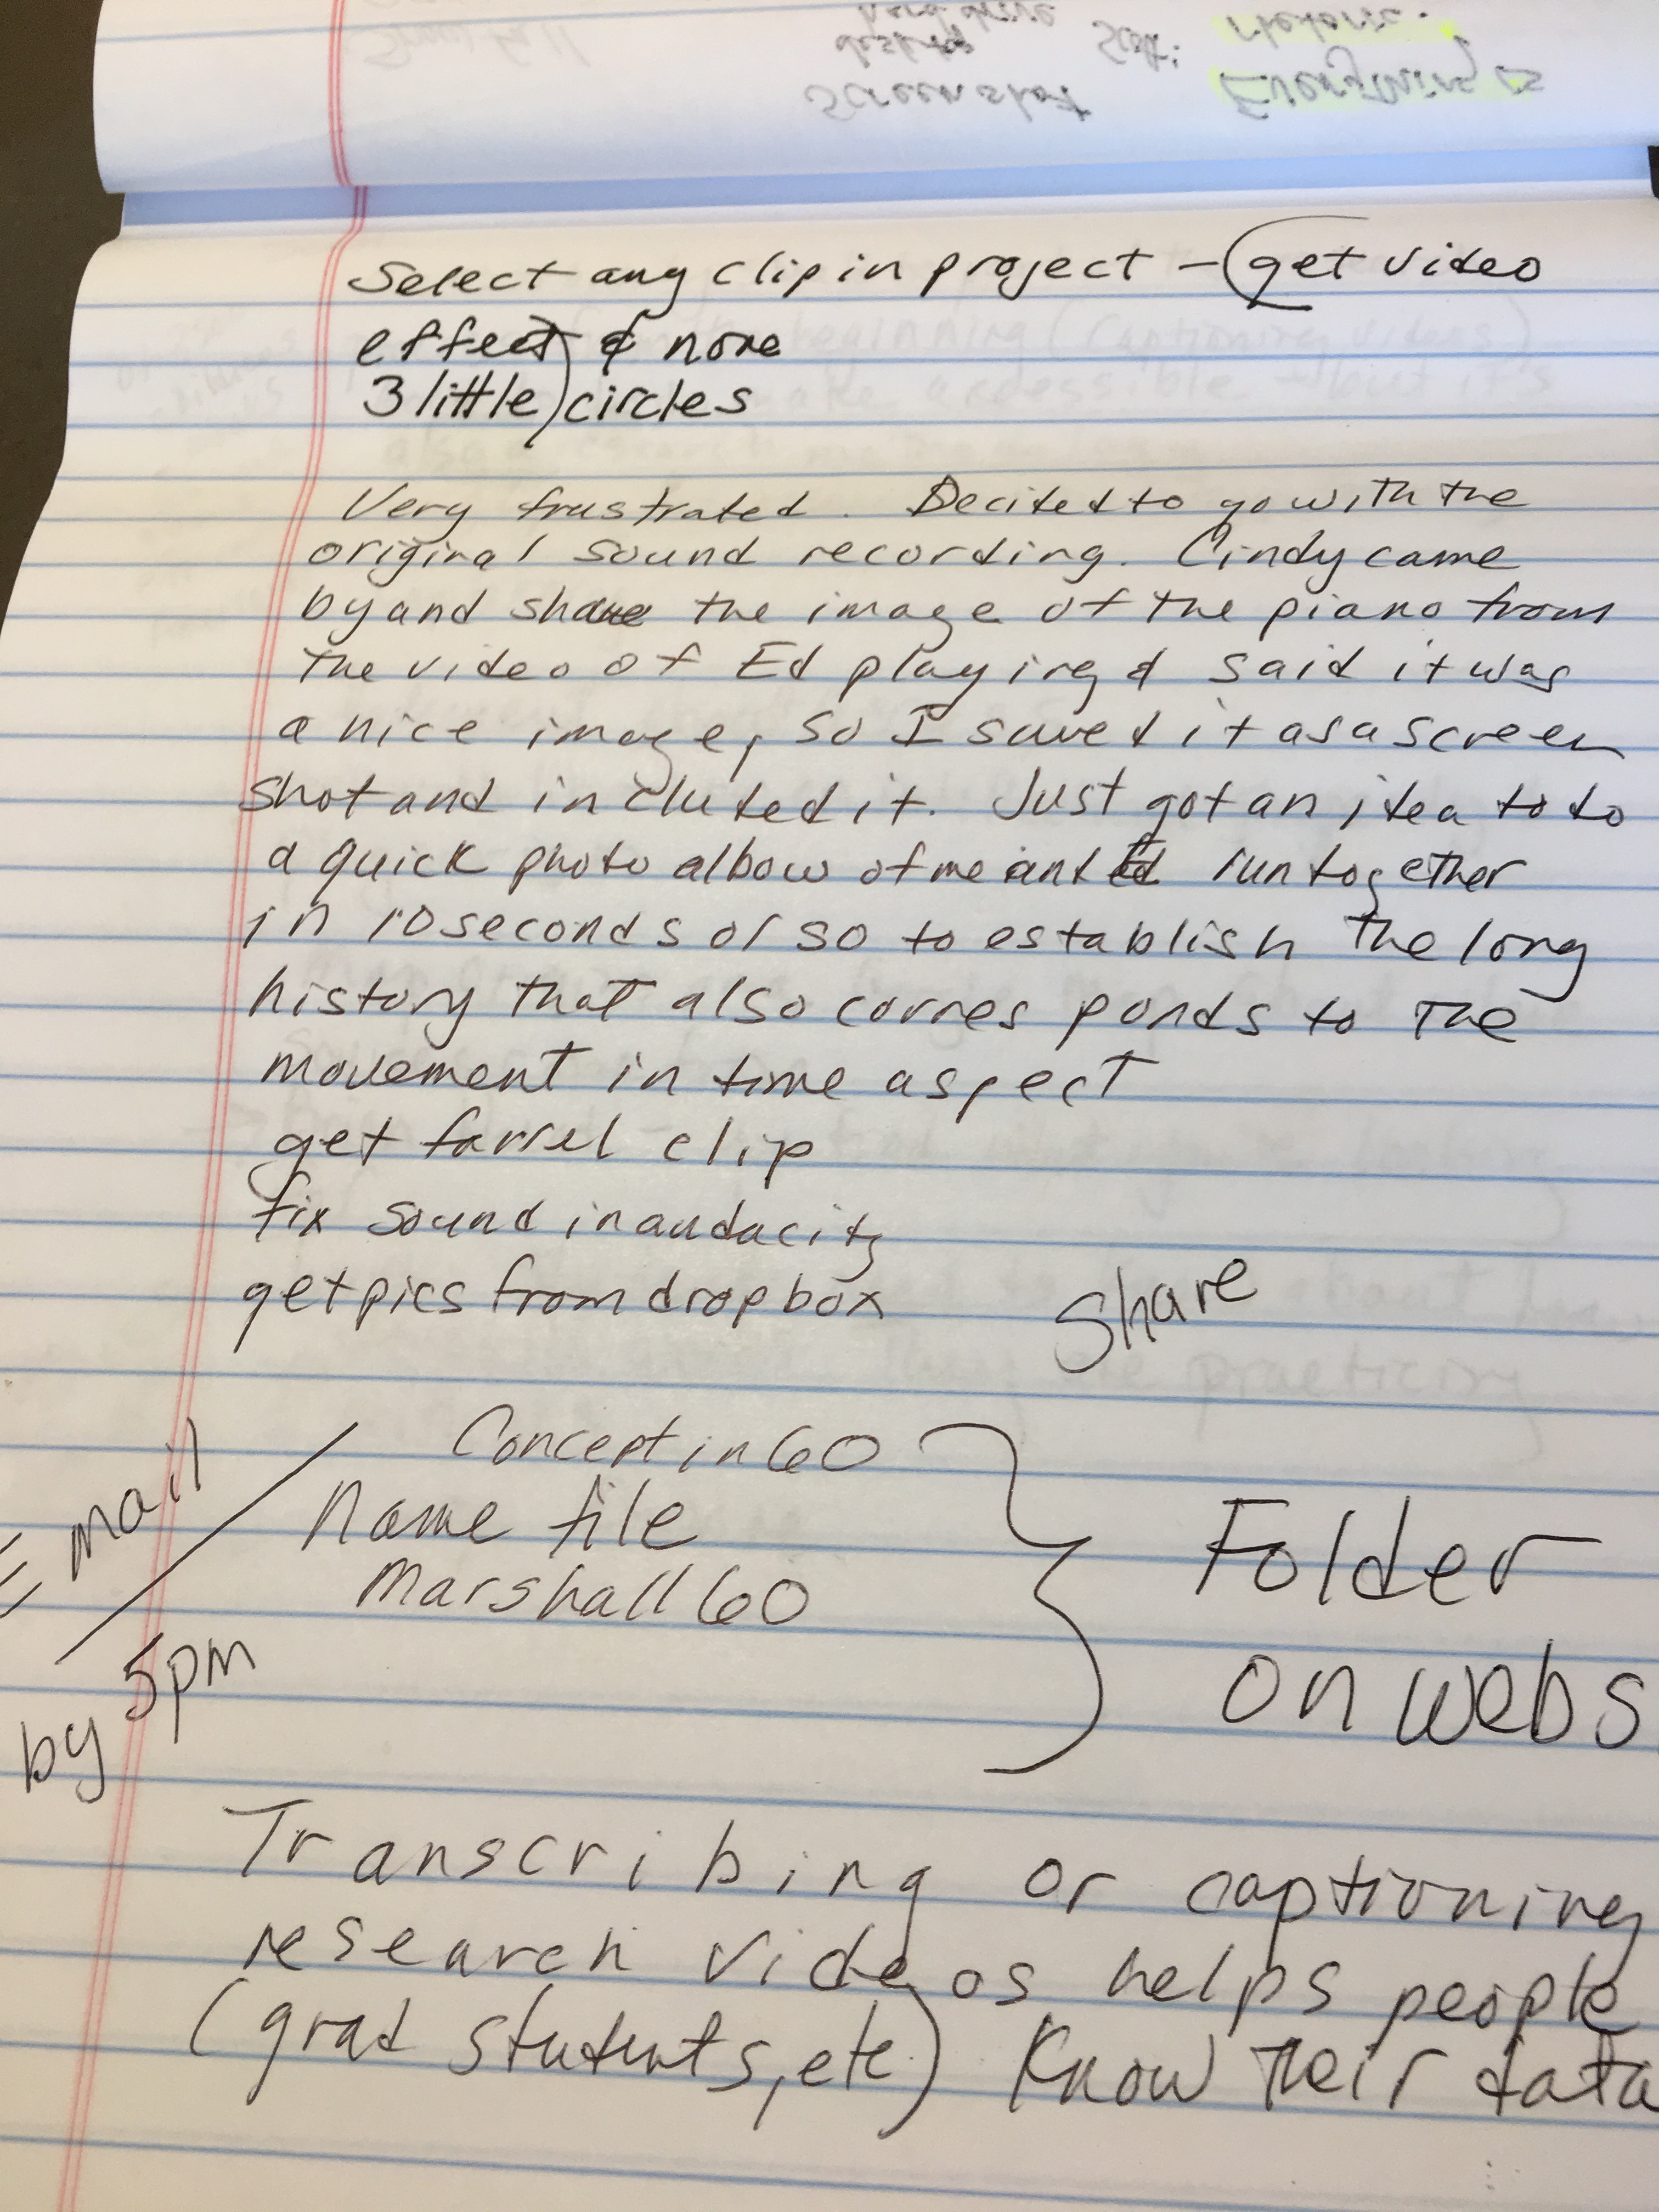 hard drive
desktop
Screen shot
Scott:
rhetoric.
Everything is
Select any clip in project – get video
effect & none
3 little circles
Very frustrated. Decided to go with the
original sound recording. Cindy came
by and the image of the piano from
the video of Ed playing & said it was
a nice image, so I saved it as a screen
shot and included it. Just got an idea to do
a quick photo albow of me and Ed run together
in 10 seconds or so to establish the long
history that also corresponds to the
movement in time aspect
get farrel clip
fix sound in audacity
get pics from dropbox
Share
E mail
by 5pm
Concept in 60
Name file
Marshall 60
Folder
on webs
Transcribing or captioning
research videos helps people
(grad students, etc.) know their data